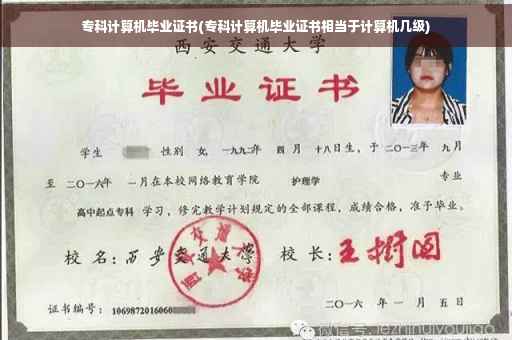 专科计算机毕业证书(专科计算机毕业证书相当于计算机几级)
西安交通大学
毕业证书
学生 性别 女, 一九九二年 四月 十八日生, 于二〇一三年 九月
至 二〇一六年 一月在本校网络教育学院 护理学 专业
高中起点专科 学习, 修完教学计划规定的全部课程, 成绩合格, 准予毕业。
校 名: 西安交通大学 校 长: 王树国
证书编号: 1069872016060
二〇一六 年 一 月 五 日
微信号: jiezhinuiyoujiao